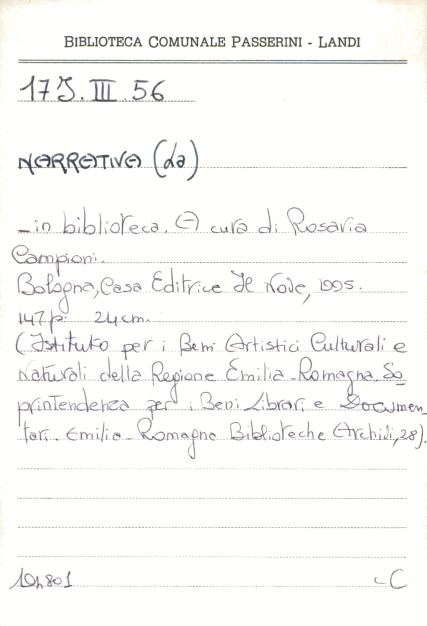 BIBLIOTECA COMUNALE PASSERINI - LANDI
17J.III.56
NARRATIVA (La)
-in biblioteca. A cura di Rosaria
Campioni.
Bologna, Casa Editrice Il Nove, 1995.
147 p. 24 cm.
(Istituto per i Beni Artistici Culturali e
Naturali della Regione Emilia-Romagna. So
printendenza per i Beni Librari e Documen_
tari. Emilia-Romagna Biblioteche Archivi, 28).
C